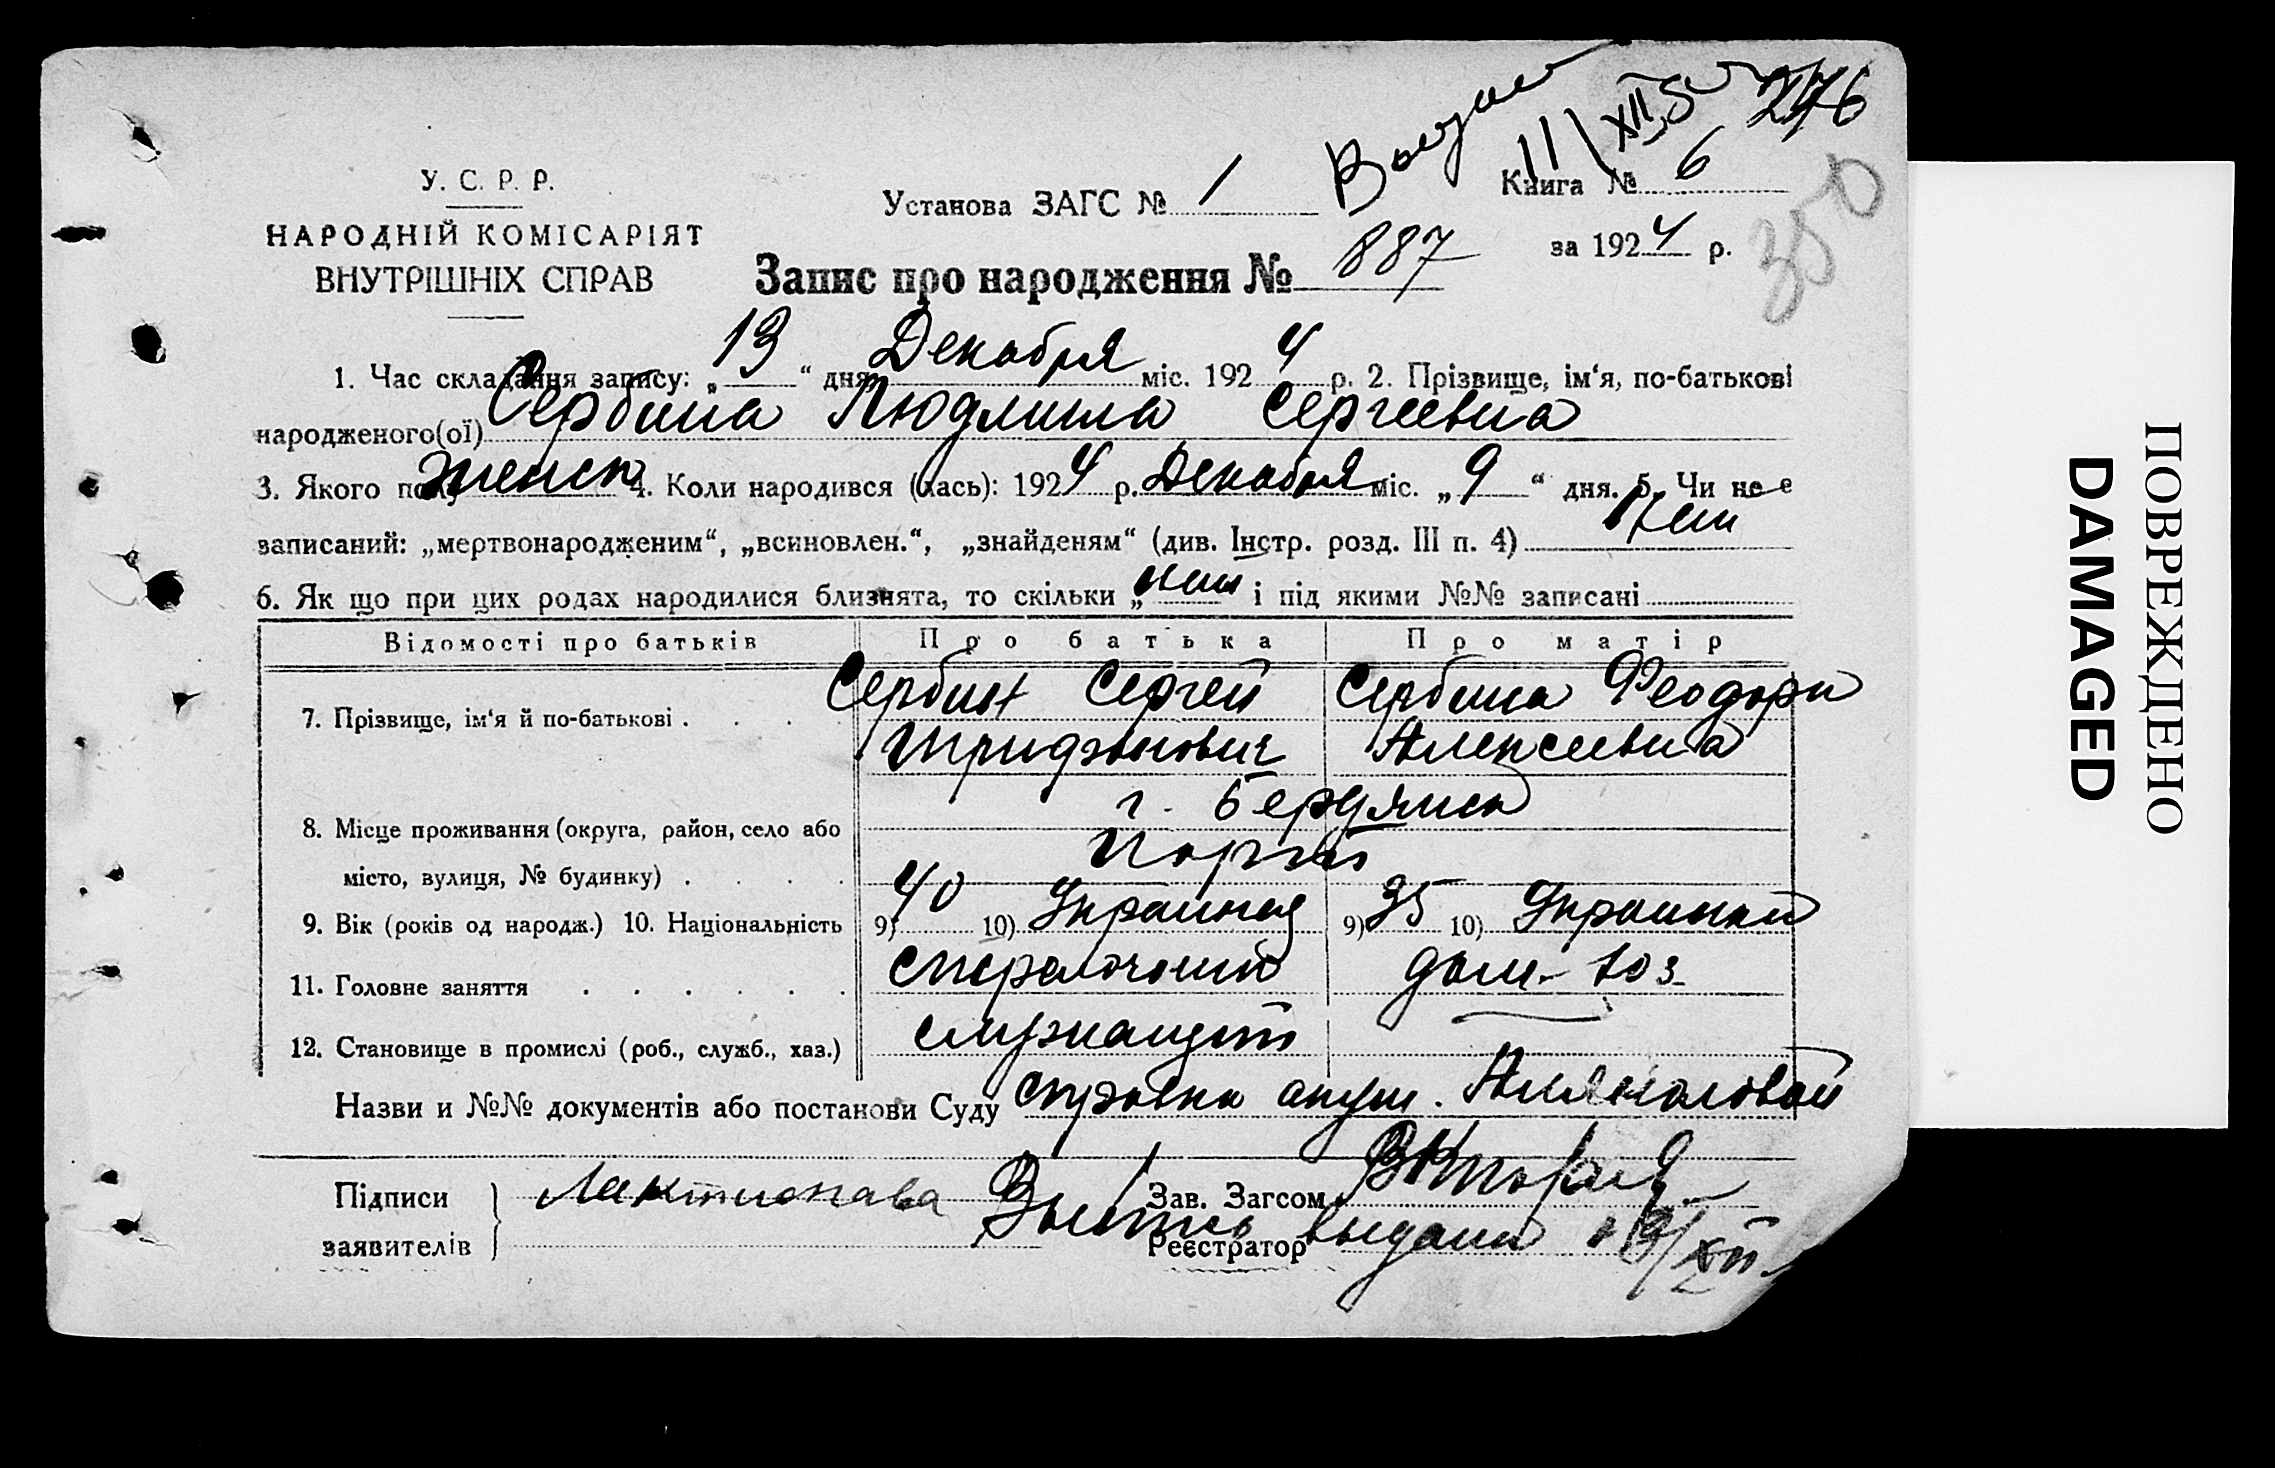 276
11/XII
350
У. С. Р. Р.
НАРОДНІЙ КОМІСАРІЯТ
ВНУТРІШНІХ СПРАВ
Установа ЗАГС № 1
Книга № 6
за 1924 р.
Запис про народження № 887
1. Час складання запису: „13“ дня Декабря міс. 1924 р. 2. Прізвище, ім‘я, по-батькові
народженого(ої) Сербина Людмила Сергеевна
3. Якого полу женск 4. Коли народився (лась): 1924 р. Декабря міс. „9“ дня. 5. Чи не є
записаний: „мертвонародженим“, „всиновлен.“, „знайденям“ (див. Інстр. розд. III п. 4) Нет
6. Як що при цих родах народилися близнята, то скільки „нет і під якими №№ записані
Відомості про батьків Про батька Про матір
7. Прізвище, ім‘я й по-батькові . . . . Сербин Сергей Сербина Феодора
Алексеевна
г. Бердянск
8. Місце проживання (округа, район, село або
Порт
місто, вулиця, № будинку) . . . .
9. Вік (років од народж.) 10. Національність 9) 40 10) Украинец 9) 35 10) Украинка
11. Головне заняття . . . . . . дом. хоз.
12. Становище в промислі (роб., служб., хаз.) служащий
Назви и №№ документів або постанови Суду справка акуш.
Підписи заявителів Лактионова
Зав. Загсом
Реєстратор
выдана 13/XII
ПОВРЕЖДЕНО
DAMAGED